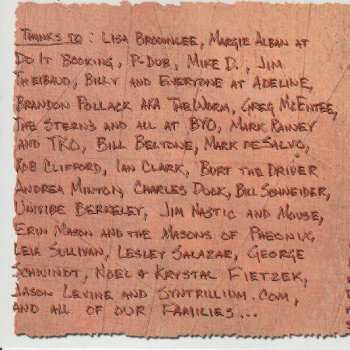 THANKS TO: LISA BROWNLEE, MARGIE ALBAN AT
DO IT BOOKING, P-DUB, MIKE D., JIM
THEIBAUD, BILLY AND EVERYONE AT ADELINE,
BRANDON POLLACK AKA THE WORM, GREG McENTEE,
THE STERNS AND ALL AT BYO, MARK RAINEY
AND TKO, BILL BELTONE, MARK DESALVO,
ROB CLIFFORD, IAN CLARK, BURT THE DRIVER
ANDREA MINTON, CHARLES DOCK, BILL SCHNEIDER,
UNIVIBE BERKELEY, JIM NASTIC AND MOUSE,
ERIN MASON AND THE MASONS OF PHEONIX,
LEIA SULLIVAN, LESLEY SALAZAR, GEORGE
SCHWINDT, NOEL & KRYSTAL FIETZEK,
JASON LEVINE AND SYNTRILLIUM.COM,
AND ALL OF OUR FAMILIES...